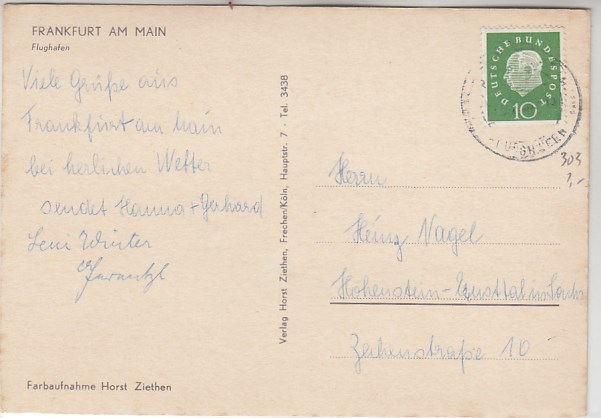 FRANKFURT AM MAIN
Flughafen
Viele Grüße aus
Frankfurt am main
bei herlichen Wetter
sendet Hanna + Gerhard
Leni Winter
Farbaufnahme Horst Ziethen
Verlag Horst Ziethen, Frechen/Köln, Hauptstr. 7 · Tel. 3438
DEUTSCHE BUNDESPOST
10
FLUGHAFEN
303
1,-
Herrn
Heinz Vagel
Hohenstein-Ernstthal in Sachs
Zechenstraße 10